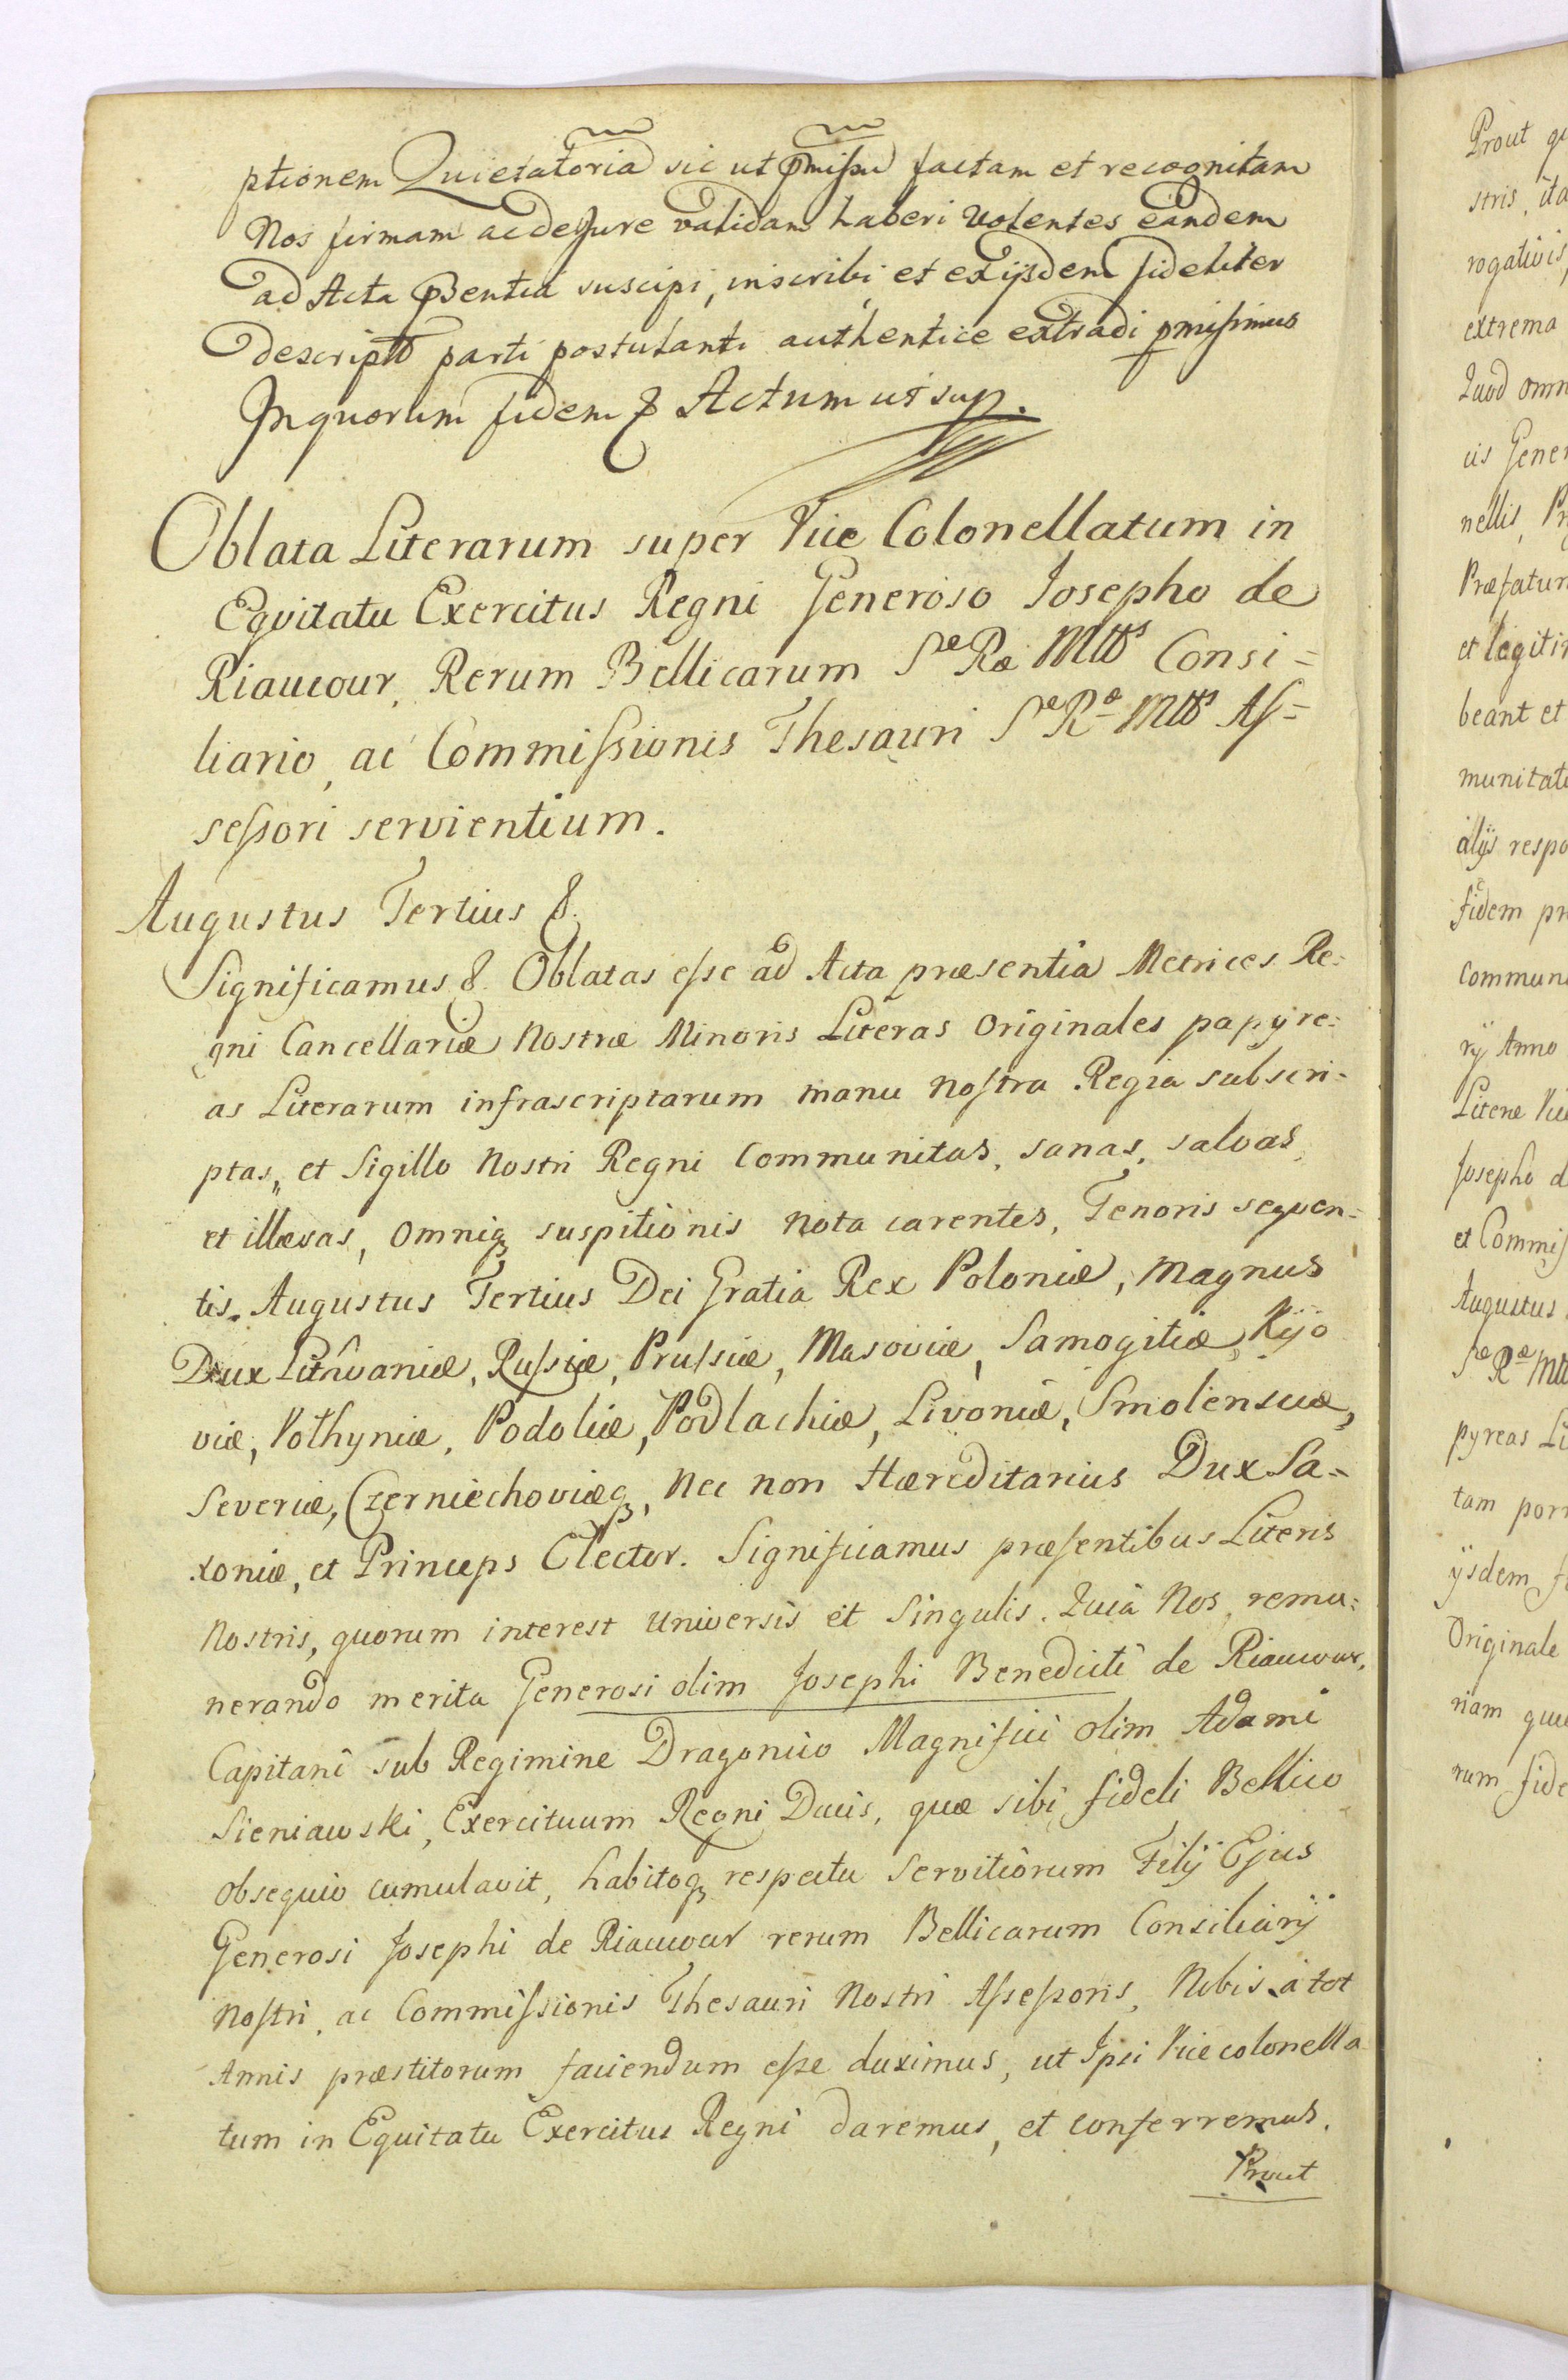 ptionem Quietatoria sic ut pmissu factam et recognitam
Nos firmam ac de Jure validam haberi volentes eandem
ad Acta pBentia suscipi, inscribi et ex ijsdem fideliter
descripto parti postulanti authentice extradi pmisimus
In quorum fidem & Actum ut sup.
Oblata Literarum super Vice Colonellatum in
Eqvitatu Exercitus Regni Generoso Josepho de
Riaucour, Rerum Bellicarum Sæ Ræ Mttis Consi=
liario, ac Commissionis Thesauri Sæ Ræ Mttis As=
sessori servientium.
Augustus Tertius &.
Significamus &. Oblatas esse ad Acta præsentia Metrices Re=
gni Cancellariæ Nostræ Minoris Literas Originales papyre=
as Literarum infrascriptarum manu nostra Regia subscri=
ptas, et Sigillo Nostri Regni Communitas, sanas, salvas,
et illæsas, omniq suspitionis nota carentes, Tenoris seqven=
tis. Augustus Tertius Dei Gratia Rex Poloniæ, Magnus
Dux Lithvaniæ, Russiæ, Prussiæ, Masoviæ, Samogitiæ, Kijo
viæ, Volhyniæ, Podoliæ, Podlachiæ, Livoniæ, Smolensciæ,
Severiæ, Czerniechoviæq, Nec non Hæreditarius Dux Sa=
xoniæ, et Princeps Elector. Significamus præsentibus Literis
Nostris, quorum interest Universis et Singulis. Quia Nos, remu=
nerando merita Generosi olim Josephi Benedicti de Riaucour,
Capitani sub Regimine Dragonico Magnifici olim Adami
Sieniawski, Exercituum Regni Ducis, quæ sibi fideli Bellico
obsequio cumulavit, habitoq respectu Servitiorum Filij Ejus
Generosi Josephi de Riaucour rerum Bellicarum Consiliarij
Nostri, ac Commissionis Thesauri Nostri Assessoris, Nobis à tot
Annis præstitorum faciendum esse duximus, ut Ipsi Vice colonella
tum in Equitatu Exercitus Regni daremus, et conferremus.
Prout
Prout
stris, ita
rogativis,
extrema
Quod omn
nellis, Pr
Præfatum
et legitim
beant et
munitati
alijs respo
fidem pr
Commun
rij Anno
Literæ Vice
Josepho d
et Commis
Augustus
Sæ Ræ Mtt
pyreas Li
tam porr
ijsdem f
Originale
riam quie
rum fide